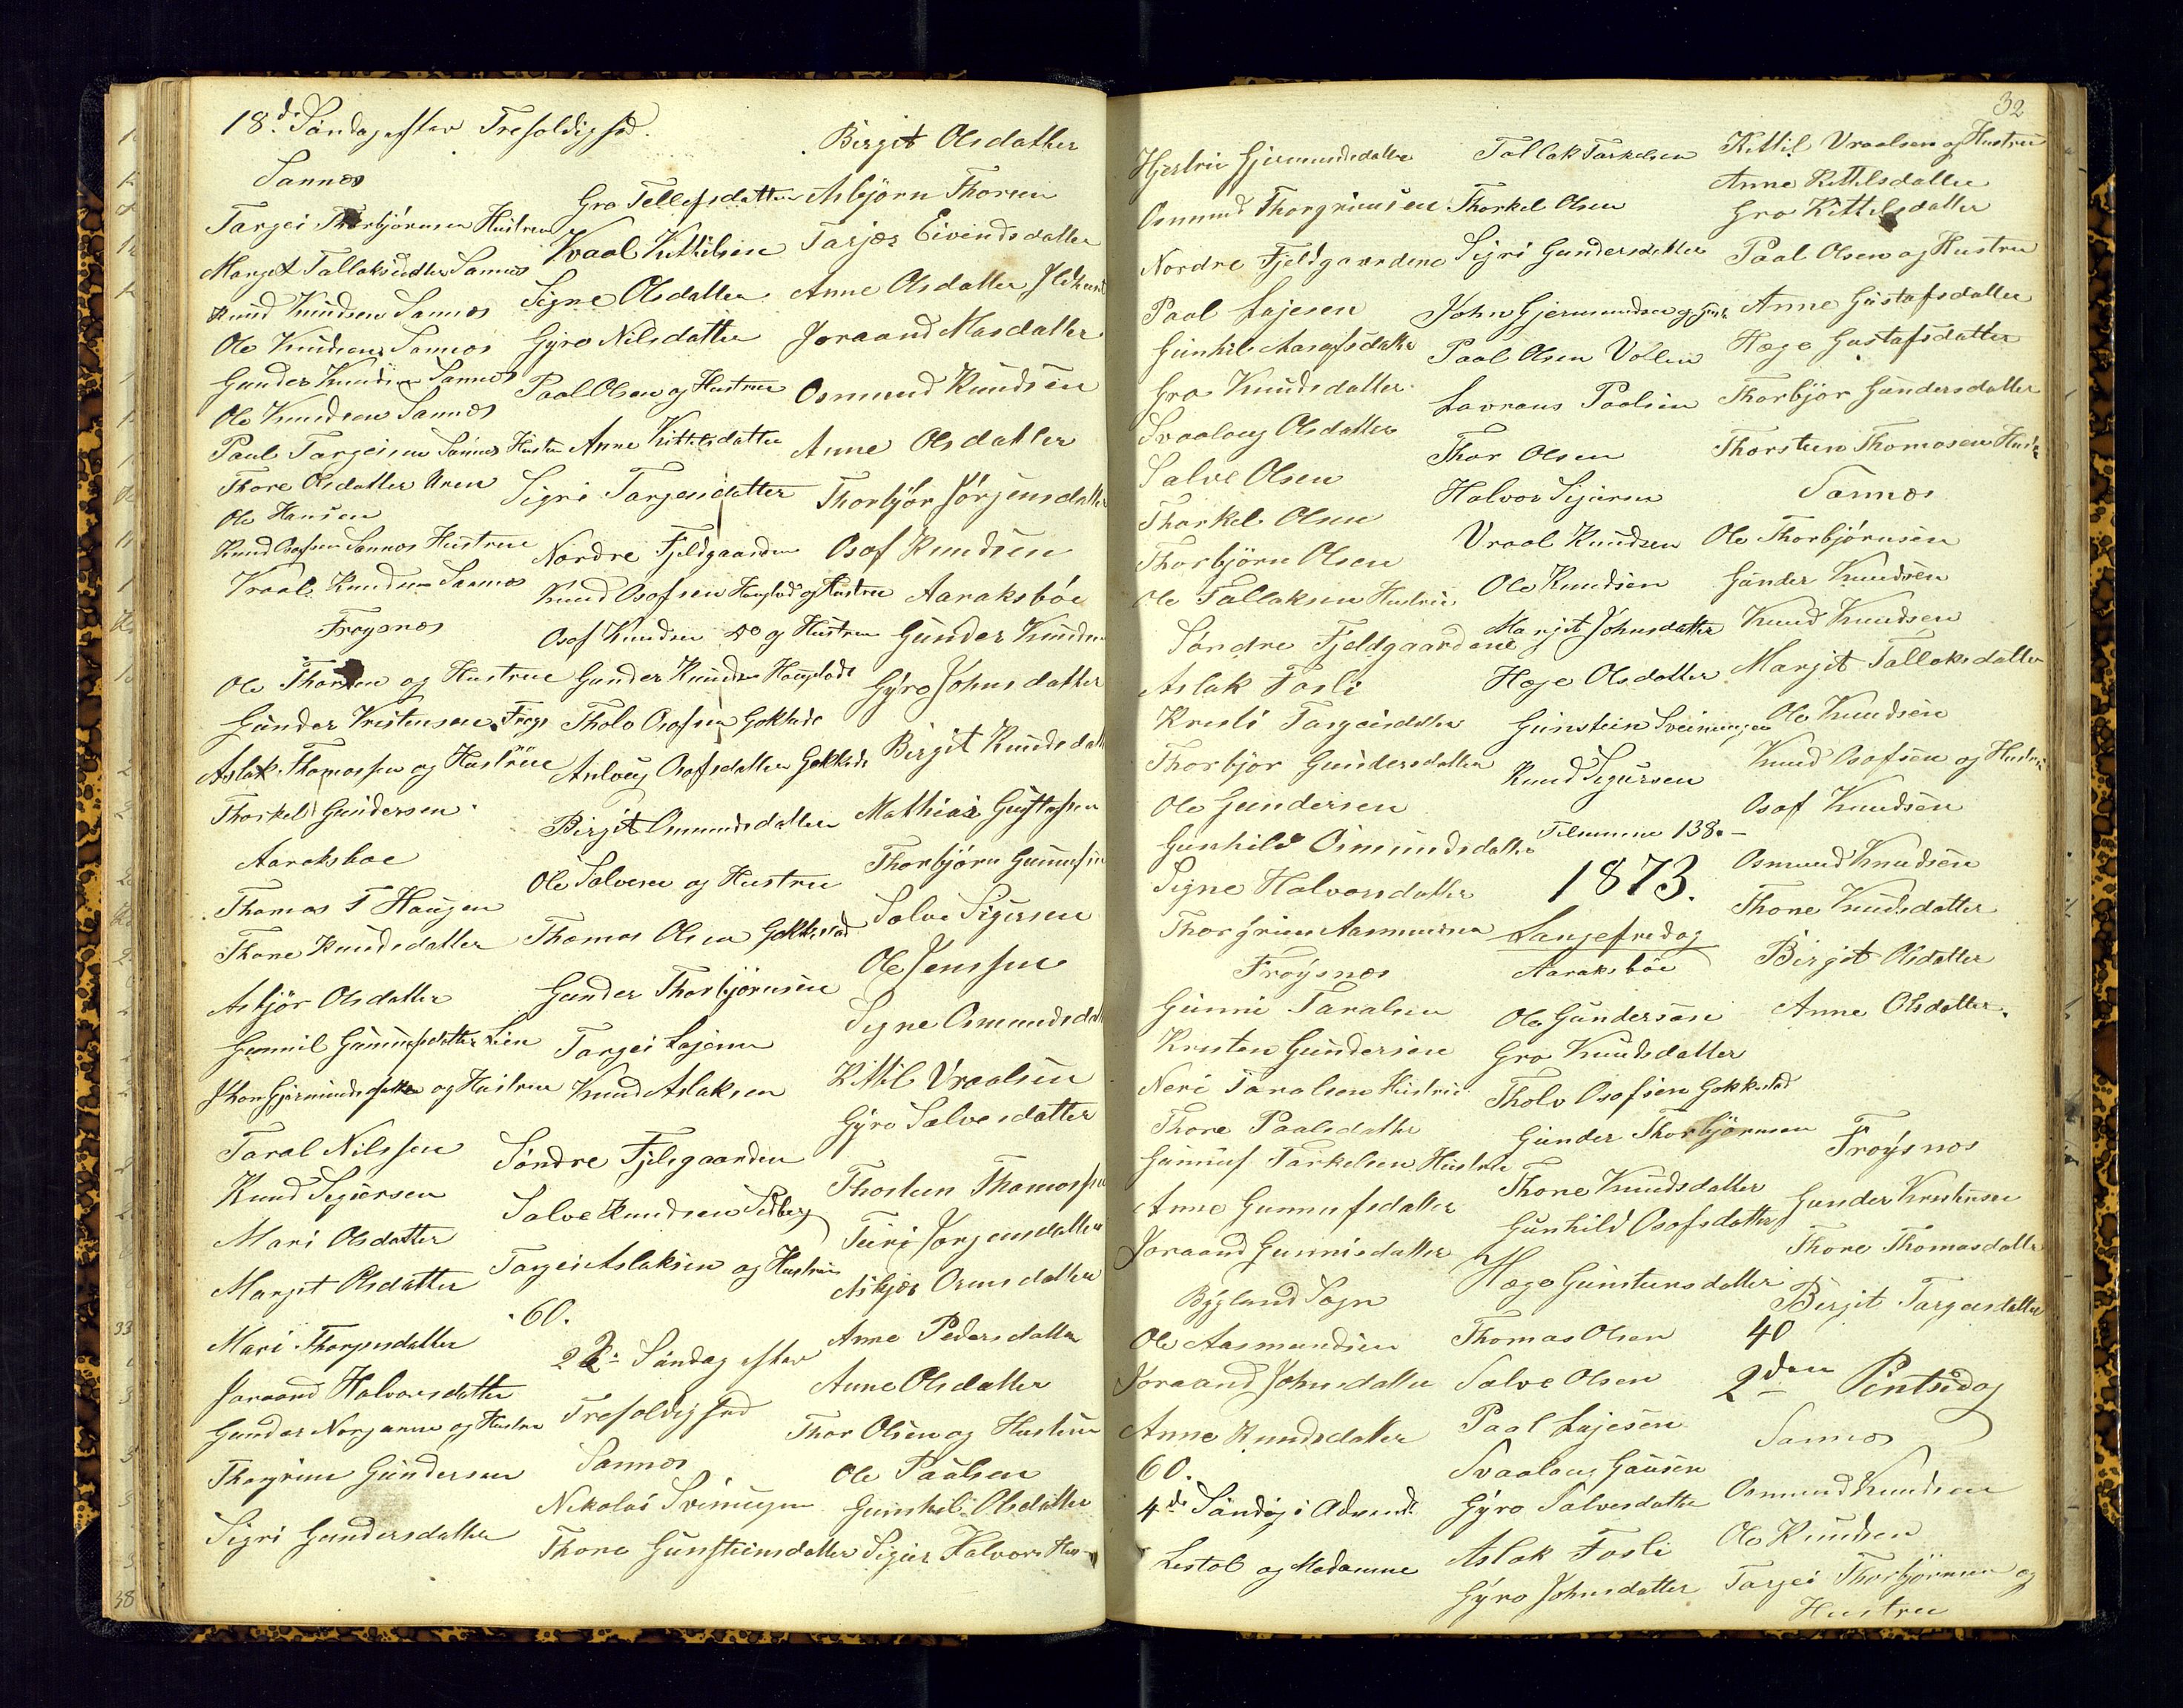 18de Søndag efter Trefoldigfed.
Sannes
Targei Thorbjørnsen Hustrue
Margit Tallaksdatter Sannes
Knud Knudsen Sannes
Ole Knudsen Sannes
Gunder Knudsen Sannes
Ole Knudsen Sannes
Paul Targeisen Sannes Hustru
Thore Olsdatter Uren
Ole Hansen
Knud Osofsen Sannes Hustrue
Vraal Knudsen Sannes
Frøysnes
Ole Thorsen og Hustrue
Gunder Kristensen Frøys
Aslak Thomassen og Hustrue
Thorkel Gundersen
Aaraksboe
Thomas T Haugen
Thone Knudsdatter
Asbjør Olsdatter
Gunnil Gunnufsdatter Lien
John Gjermunds og Hustrue
Taral Nilssen
Knud Sigursen
Mari Olsdatter
Margit Olsdatter
Mari Thorgrisdatter
Joraand Halvorsdatter
Gunder Norjanne og Hustru
Thorgrim Gundersen
Sigri Gundersdatter
Gro Tellefsdatter
Vraal Kittilsen
Signe Olsdatter
Gyro Nilsdatter
Paal Olsen og Hustrue
Anne Kittilsdatter
Sigri Targeisdatter
Nordre Fjeldgaarden
Knud Osofsen Hougstad og Hustrue
Osof Knudsen Do og Hustrue
Gunder Knudsen Hougstad
Tholv Osofsen Gokstade
Anlaug Osofsdatter Gokstade
Birgit Osmundsdatter
Ole Salvesen og Hustrue
Thomas Olsen Gokkestad
Gunder Thorbjørnsen
Targei Lajesen
Knud Aslaksen
Søndre Fjelsgaarden
Salve Knudsen
Targei Aslaksen og Hustrue
60.
26. Søndag efter
Trefoldigfed
Sannes
Nikolai Sveinugsen
Thone Gunsteinsdatter
Birgit Olsdatter
Asbjørn Thorsen
Tarjer Eivindsdatter
Anne Olsdatter
Joraand Masdatter
Osmund Knudsen
Anne Olsdatter
Thorbjør Jørgensdatter
Osof Knudsen
Aaraksbøe
Gunder Knudsen
Gyro Johnsdatter
Birgit Knudsdatt
Mathias Gustafsen
Thorbjørn Gunnufsen
Salve Sigursen
Ole Jenssen
Signe Osmundsdatt
Kittil Vraalsen
Gyro Salvesdatter
Thosten Thomassen
Turi Jørgensdatter
Asbjør Ormsdatter
Anne Pedersdatter
Anne Olsdatter
Thor Olsen og Hustrue
Ole Paulsen
Gunhild Olsdatter
Sigur Halvors Hus
32
Hjertrù Gjermundsdatter
Osmund Thorgrimsen
Nordre Fjeldgaardene
Paal Lajesen
Gunhil Aasulfsdatter
Gro Knudsdatter
Svaalaug Olsdatter
Salve Olsen
Thorkel Olsen
Thorbjørn Olsen
Ole Tallaksen Hustrue
Søndre Fjeldgaardene
Aslak Fosli
Kristi Targeisdatter
Thorbjør Gundersdatter
Ole Gundersen
Gunhild Osmundsdatter
Signe Halvorsdatter
Thorgrim Aasmunsen
Frøysnes
Gunni Taralsen
Kristen Gundersen
Neri Taralsen Hustrue
Thore Paalsdatter
Gunnuf Tarkelsen Hustrue
Anne Gunnufsdatter
Joraand Gunnisdatter
Bygland Sogn
Ole Aasmundsen
Joraand Johnsdatter
Anne Knudsdatter
60.
4de Søndag i Advendt
Lestol og Madamme
Tallak Tarkelsen
Thorkel Olsen
Sigri Gundersdatter
John Gjermundsen og Hust
Paal Olsen Vollen
Lavrans Paalsen
Thor Olsen
Halvor Sigursen
Vraal Knudsen
Ole Knudsen
Margit Johnsdatter
Hæge Olsdatter
Gunstein Sveinungsen
Knud Sigursen
Tilsamme 138.-
1873.
Langefredag
Aaraksbøe
Ole Gundersen
Gro Knudsdatter
Tholv Osofsen Gokkestad
Gunder Thorbjørnsen
Thone Knudsdatter
Gunhild Osofsdatter
Hæge Gunstensdatter
Thomas Olsen
Salve Olsen
Paal Lajesen
Svaalaug Gausen
Gyro Salvesdatter
Aslak Fosli
Gyro Johnsdatter
Kittil Vraalsen og Hustrue
Anne Kittilsdatter
Gro Kittelsdatter
Paal Olsen og Hustrue
Anne Gustafsdatter
Hæge Gustafsdatter
Thorbjør Gundersdatter
Thorsten Thomasen Hust
Sannes
Ole Thorbjørnsen
Gunder Knudsen
Knud Knudsen
Margit Tallaksdatter
Ole Knudsen
Knud Osofsen og Hustru
Osof Knudsen
Osmund Knudsen
Thone Knudsdatter
Birgit Olsdatter
Anne Olsdatter.
Frøysnes
Gunder Kristensen
Thore Thomasdatter
Birgit Targeisdatter
40
2den Pintsedag
Sannes
Osmund Knudsen
Ole Knudsen
Targei Thorbjørnsen og
Hustrue
33
38